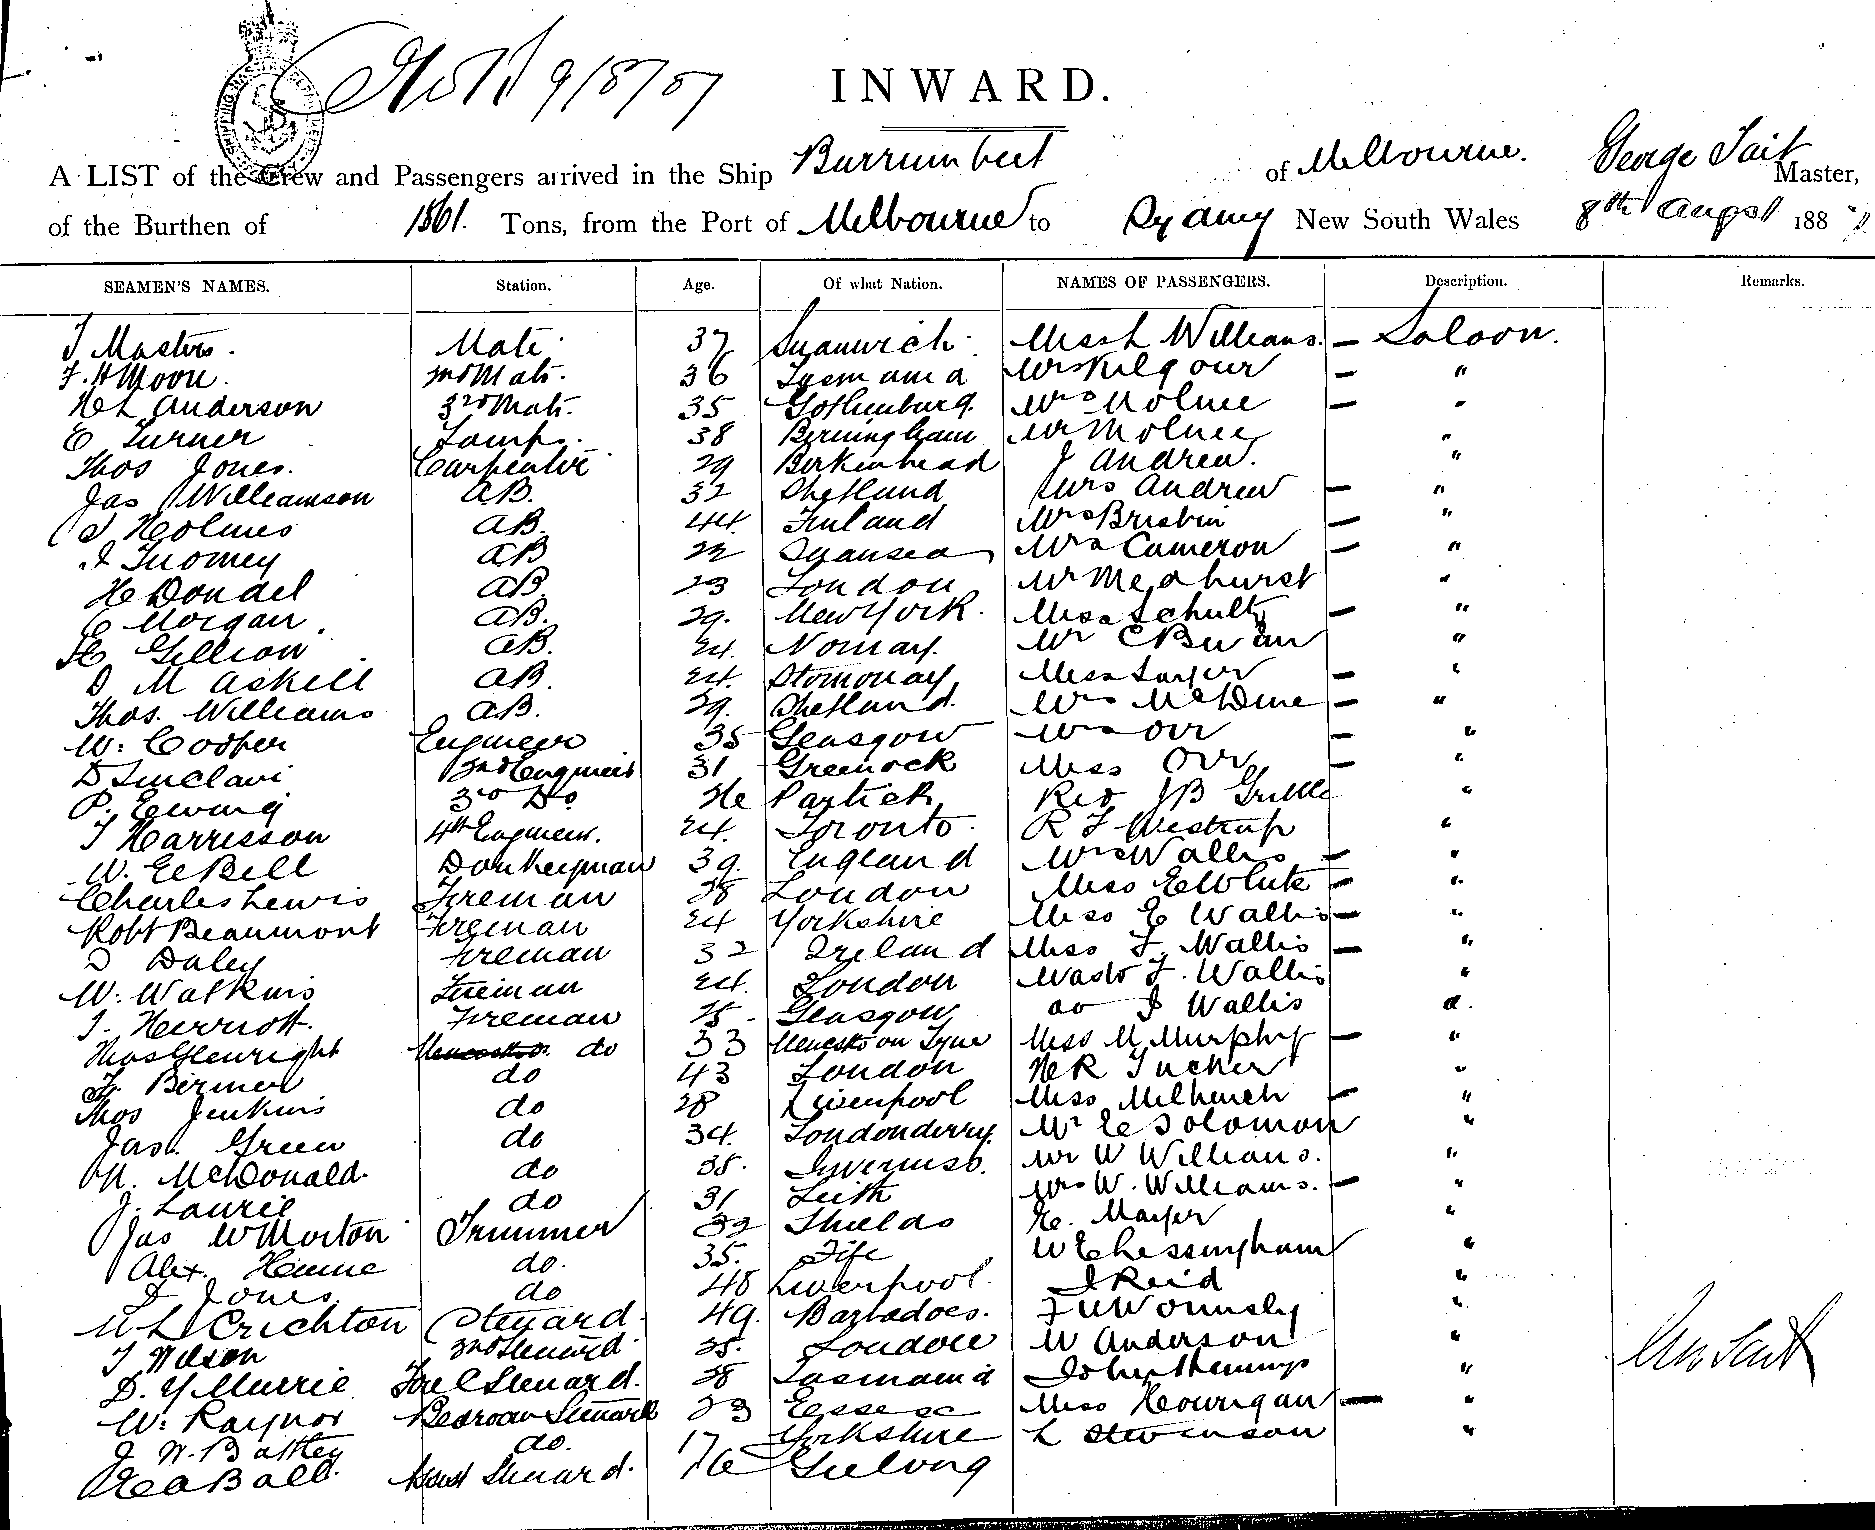 9/8/87
INWARD.
A LIST of the Crew and Passengers arrived in the Ship Burrumbeet of Melbourne. George Tait Master,
of the Burthen of 1861. Tons, from the Port of Melbourne to Sydney New South Wales 8th August 188
SEAMEN'S NAMES. Station. Age. Of what Nation. NAMES OF PASSENGERS. Description. Remarks.
J Masters. Mate. 37 Miss L Williams. — Saloon.
F. H Moon. 2nd Mate. 36 Tasmania Mrs Kilgour — "
H L Anderson 3rd Mate. 35 Gothenburg. Mrs Holme — "
C Turner Lamps. 38 Birmingham Mr Holme "
Thos Jones. Carpenter 29 Birkenhead J Andrew. "
Jas Williamson AB. 32 Shetland Mrs Andrew — "
J Holmes AB. 44. Finland Mrs Brisbin — "
J Tuomey AB 22 Swansea Mrs Cameron — "
H Dondel AB. 23 London Mr Medhurst "
C Morgan. AB. 29. New York. Miss Schultz — "
H Gillion AB. 24. Norway. Mr C "
D M Askill AB. 24. Stornoway Miss — "
Thos. Williams AB. 29. Shetland. Mrs — "
W. Cooper Engineer 35 Glasgow Mrs Orr — "
D Sinclair 2nd Engineer 31 Greenock Miss Orr — "
P. Ewing 3rd Do Partick Rev J B "
J Harrisson 4th Engineer. 24. Toronto. R F Westrup "
W. Ed Bell Donkeyman 39. England Mrs Wallis — "
Charles Lewis Fireman 28 London Miss E White — "
Robt Beaumont Fireman 24 Yorkshire Miss E Wallis — "
D Daley Fireman 32 Ireland Miss F. Wallis — "
W. Watkins Fireman 24. London Mastr F. Wallis "
J. Herriott. Fireman 25. Glasgow do J Wallis "
Thos Glenright do 33 Newcastle on Tyne Miss M Murphy — "
do 43 London H R Tucker "
Thos Jenkins do 28 Liverpool Miss — "
Jas. Green do 34. Londonderry. Mr E Solomon "
M. McDonald. do 35. Inverness. Mr W Williams. "
J. Laurie do 31 Leith Mrs W. Williams. — "
Jas W Morton Trimmer 32 Shields "
Alex. do. 35. Fife W Chessingham "
D Jones do 48 Liverpool. J Reid "
M L Crichton Steward. 49. Barbadoes. "
J Wilson 2nd Steward. 25. London W Anderson "
D. Y Murrie Fore C Steward. 28 Tasmania "
W. Raynor Bedroom Steward 23 Essex Miss Hourigan — "
J W. Battey do. 17 Yorkshire L Stevenson "
Ball. Steward. 16 Geelong
Geo Tait